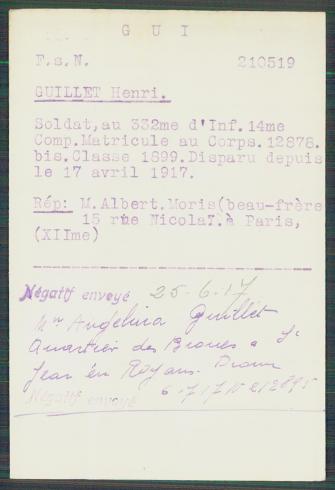 G U I
F.s.N. 210519
GUILLET Henri.
Soldat,au 332me d'Inf. 14me
Comp.Matricule au Corps. 12878.
bis.Classe 1899.Disparu depuis
le 17 avril 1917.
Rép: M.Albert.Moris(beau-frère
15 rue NicolaÏ.à Paris,
(XIIme)
Négatif envoyé 25-6-17
Mme Angelina Guillet
Quartier des à St
Jean en Royans. Drome
Négatif envoyé 6.717 N 212895